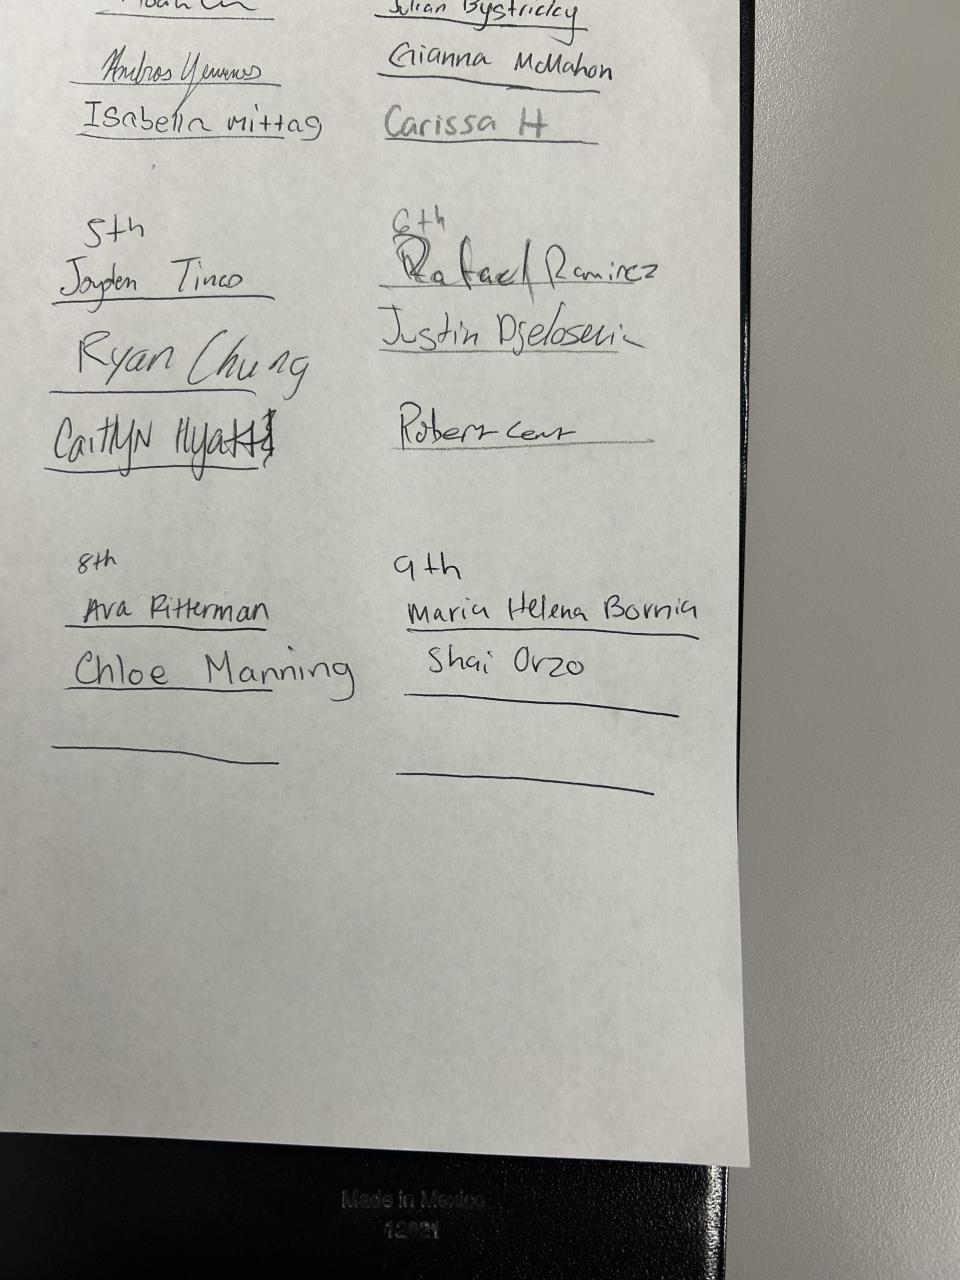 Julian Bystricky
Gianna McMahon
Isabella Mittag
Carissa H
5th
Jayden Tinco
Ryan Chung
Caitlyn Hyatt
6th
Rafael Ramirez
Justin
Robert
8th
Ava Ritterman
Chloe Manning
9th
Maria Helena Bornia
Shai Orzo
Made in Mexico